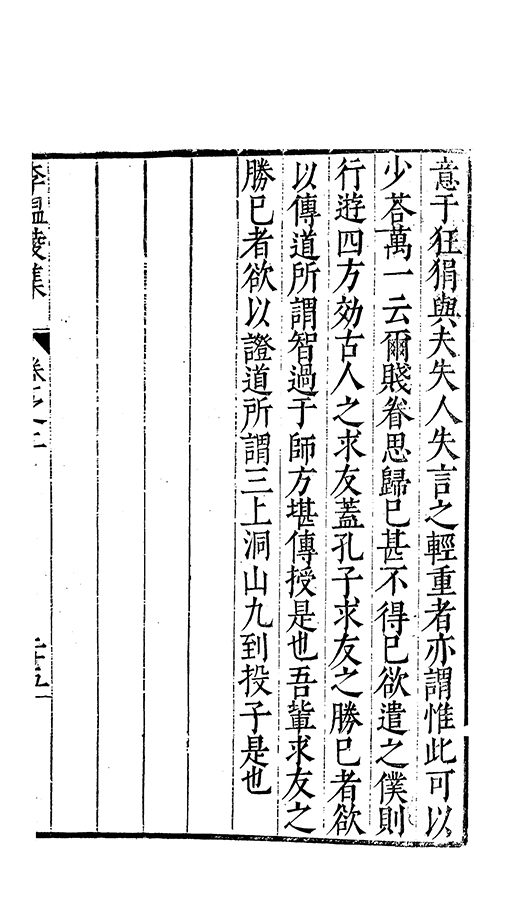 意于狂狷與夫失人失言之輕重者亦謂惟此可以
少荅萬一云爾賤眷思歸已甚不得已欲遣之僕則
行遊四方効古人之求友蓋孔子求友之勝已者欲
以傳道所謂智過于師方堪傳授是也吾軰求友之
勝已者欲以證道所謂三上洞山九到投子是也
李温陵集
卷之二